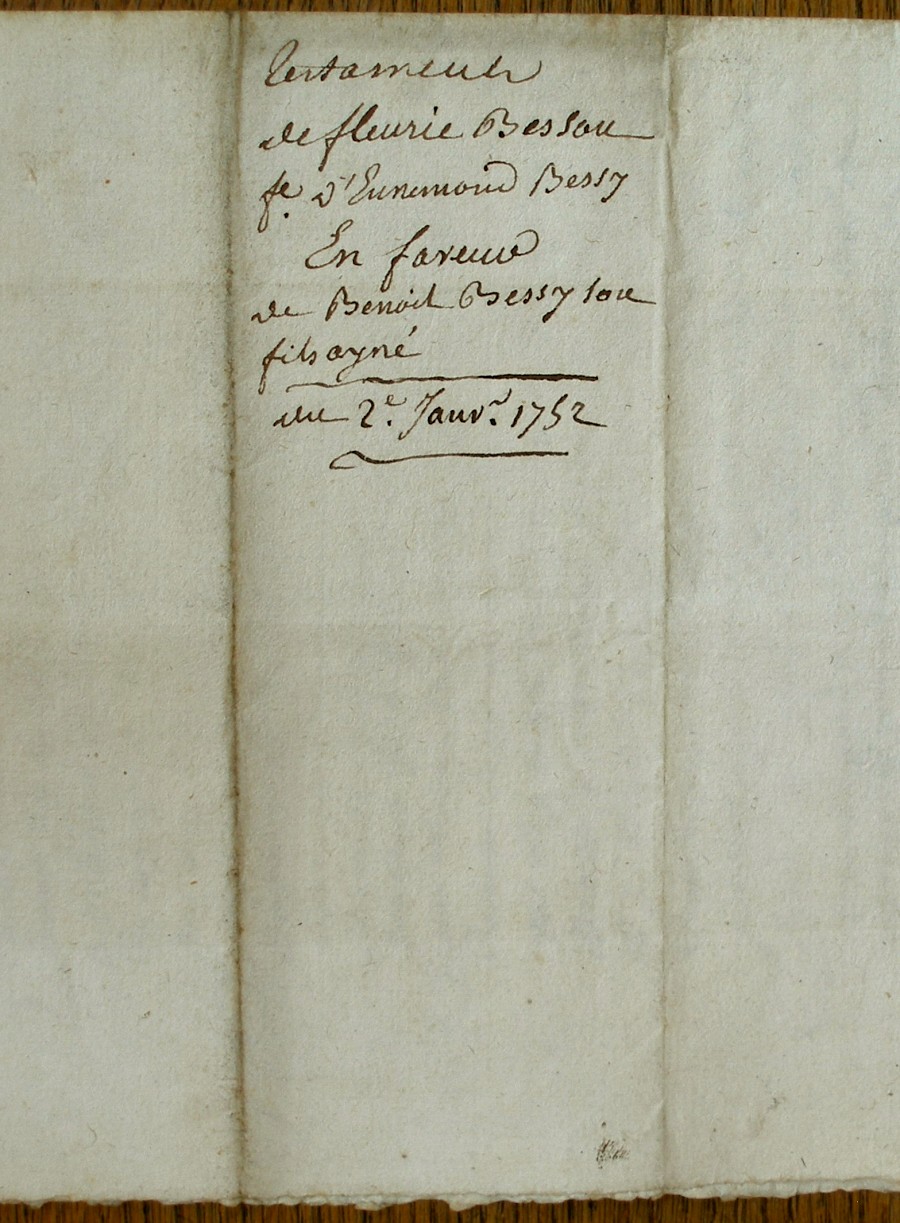 Testament
de fleurie Besson
fe. d'Ennemond Bessy
En faveur
de Benoit Bessy son
fils ayné
du 2e. Janvr. 1752